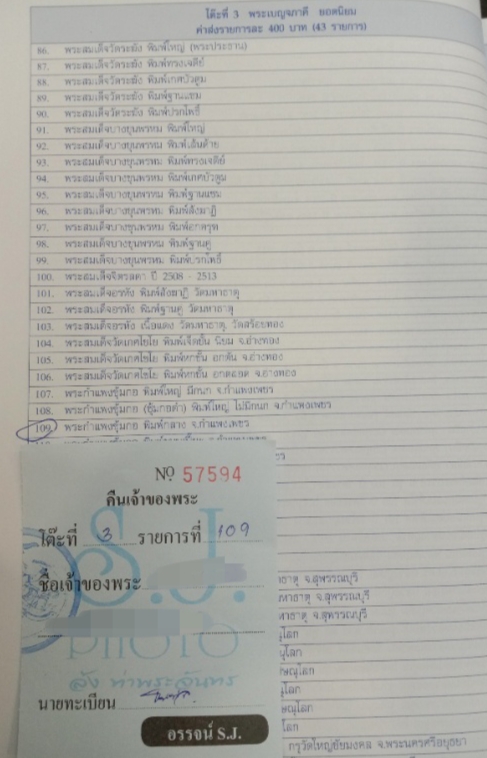 โต๊ะที่ 3 พระเบญจภาคี ยอดนิยม
ค่าส่งรายการละ 400 บาท (43 รายการ)
86. พระสมเด็จวัดระฆัง พิมพ์ใหญ่ (พระประธาน)
87. พระสมเด็จวัดระฆัง พิมพ์ทรงเจดีย์
88. พระสมเด็จวัดระฆัง พิมพ์เกศบัวตูม
89. พระสมเด็จวัดระฆัง พิมพ์ฐานแซม
90. พระสมเด็จวัดระฆัง พิมพ์ปรกโพธิ์
91. พระสมเด็จบางขุนพรหม พิมพ์ใหญ่
92. พระสมเด็จบางขุนพรหม พิมพ์เส้นด้าย
93. พระสมเด็จบางขุนพรหม พิมพ์ทรงเจดีย์
94. พระสมเด็จบางขุนพรหม พิมพ์เกศบัวตูม
95. พระสมเด็จบางขุนพรหม พิมพ์ฐานแซม
96. พระสมเด็จบางขุนพรหม พิมพ์สังฆาฏิ
97. พระสมเด็จบางขุนพรหม พิมพ์อกครุฑ
98. พระสมเด็จบางขุนพรหม พิมพ์ฐานคู่
99. พระสมเด็จบางขุนพรหม พิมพ์ปรกโพธิ์
100. พระสมเด็จจิตรลดา ปี 2508 - 2513
101. พระสมเด็จอรหัง พิมพ์สังฆาฏิ วัดมหาธาตุ
102. พระสมเด็จอรหัง พิมพ์ฐานคู่ วัดมหาธาตุ
103. พระสมเด็จอรหัง เนื้อแดง วัดมหาธาตุ, วัดสร้อยทอง
104. พระสมเด็จวัดเกศไชโย พิมพ์เจ็ดชั้น นิยม จ.อ่างทอง
105. พระสมเด็จวัดเกศไชโย พิมพ์หกชั้น อกตัน จ.อ่างทอง
106. พระสมเด็จวัดเกศไชโย พิมพ์หกชั้น อกตลอด จ.อ่างทอง
107. พระกำแพงซุ้มกอ พิมพ์ใหญ่ มีกนก จ.กำแพงเพชร
108. พระกำแพงซุ้มกอ (ซุ้มกอดำ) พิมพ์ใหญ่ ไม่มีกนก จ.กำแพงเพชร
109. พระกำแพงซุ้มกอ พิมพ์กลาง จ.กำแพงเพชร
№ 57594
คืนเจ้าของพระ
โต๊ะที่ 3 รายการที่ 109
ชื่อเจ้าของพระ
S.J.
PHOTO
ลัง ท่าพระจันทร์
นายทะเบียน
อรรจน์ S.J.
ธาตุ จ.สุพรรณบุรี
หาธาตุ จ.สุพรรณบุรี
หาธาตุ จ.สุพรรณบุรี
ณุโลก
ณุโลก
ษณุโลก
ณุโลก
ษณุโลก
โลก
กรุวัดใหญ่ชัยมงคล จ.พระนครศรีอยุธยา